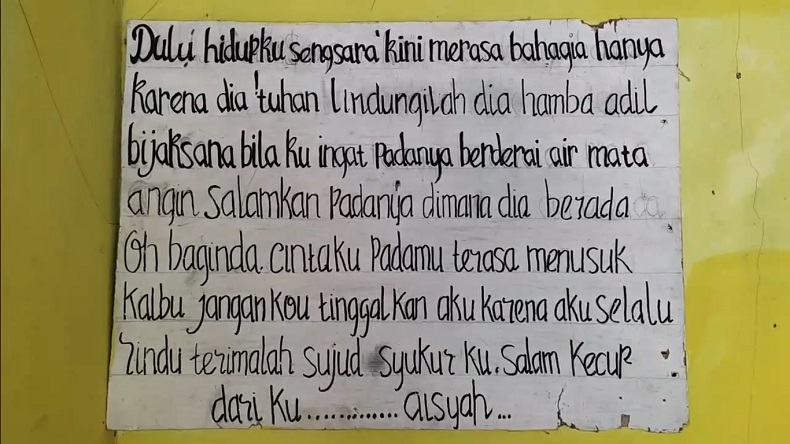 Dulu hidupku sengsara' kini merasa bahagia hanya
karena dia 'tuhan lindungilah dia hamba adil
bijaksana bila ku ingat padanya berderai air mata
angin salamkan padanya dimana dia berada
Oh baginda. cintaku padamu terasa menusuk
kalbu jangan kou tinggalkan aku karena aku selalu
rindu terimalah sujud syukur ku. salam kecup
dari ku............. aisyah...